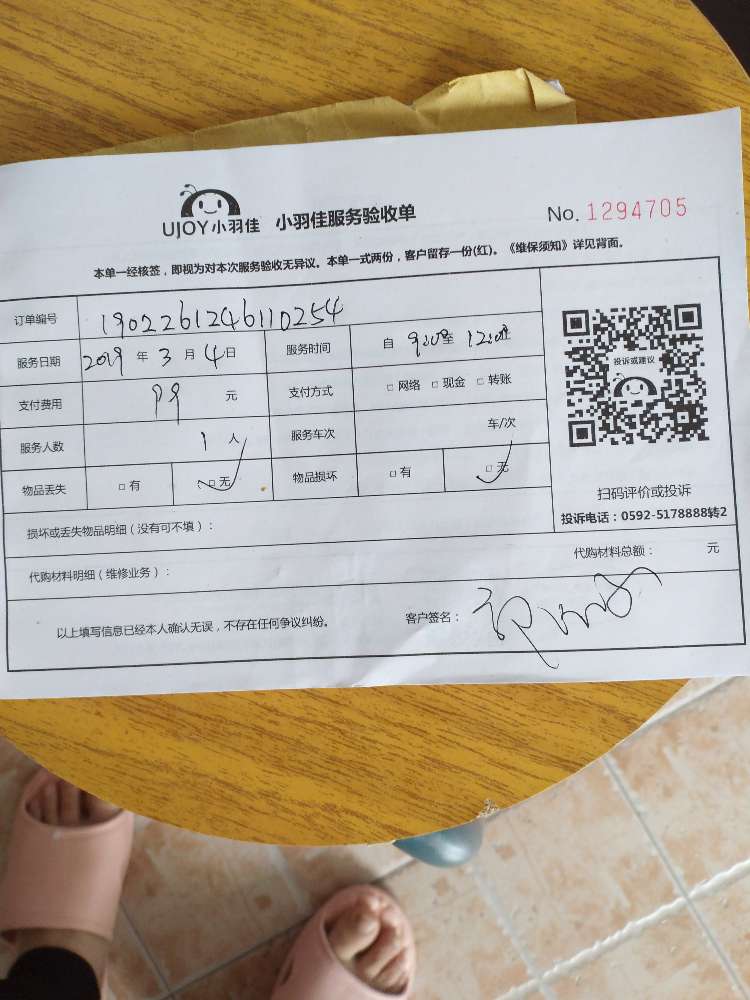 UJOY小羽佳 小羽佳服务验收单 No. 1294705
本单一经核签，即视为对本次服务验收无异议。本单一式两份，客户留存一份(红)。《维保须知》详见背面。
订单编号 1902261246110254
服务日期 2019 年 3 月 4 日 服务时间 自 9:00 至 12:00止
支付费用 99 元 支付方式 □ 网络 □ 现金 □ 转账
服务人数 1 人 服务车次 车/次
物品丢失 □ 有 □ 无 物品损坏 □ 有 □ 无
投诉或建议
扫码评价或投诉
投诉电话：0592-5178888转2
损坏或丢失物品明细（没有可不填）：
代购材料明细（维修业务）： 代购材料总额： 元
以上填写信息已经本人确认无误，不存在任何争议纠纷。 客户签名：